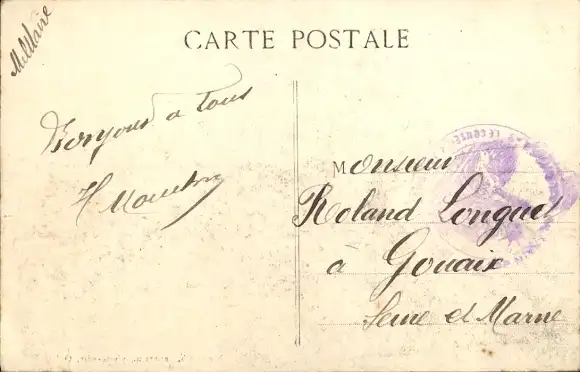 Militaire
CARTE POSTALE
Bonjour à tous
Monsieur
Roland Longuet
à Gouaix
Seine et Marne